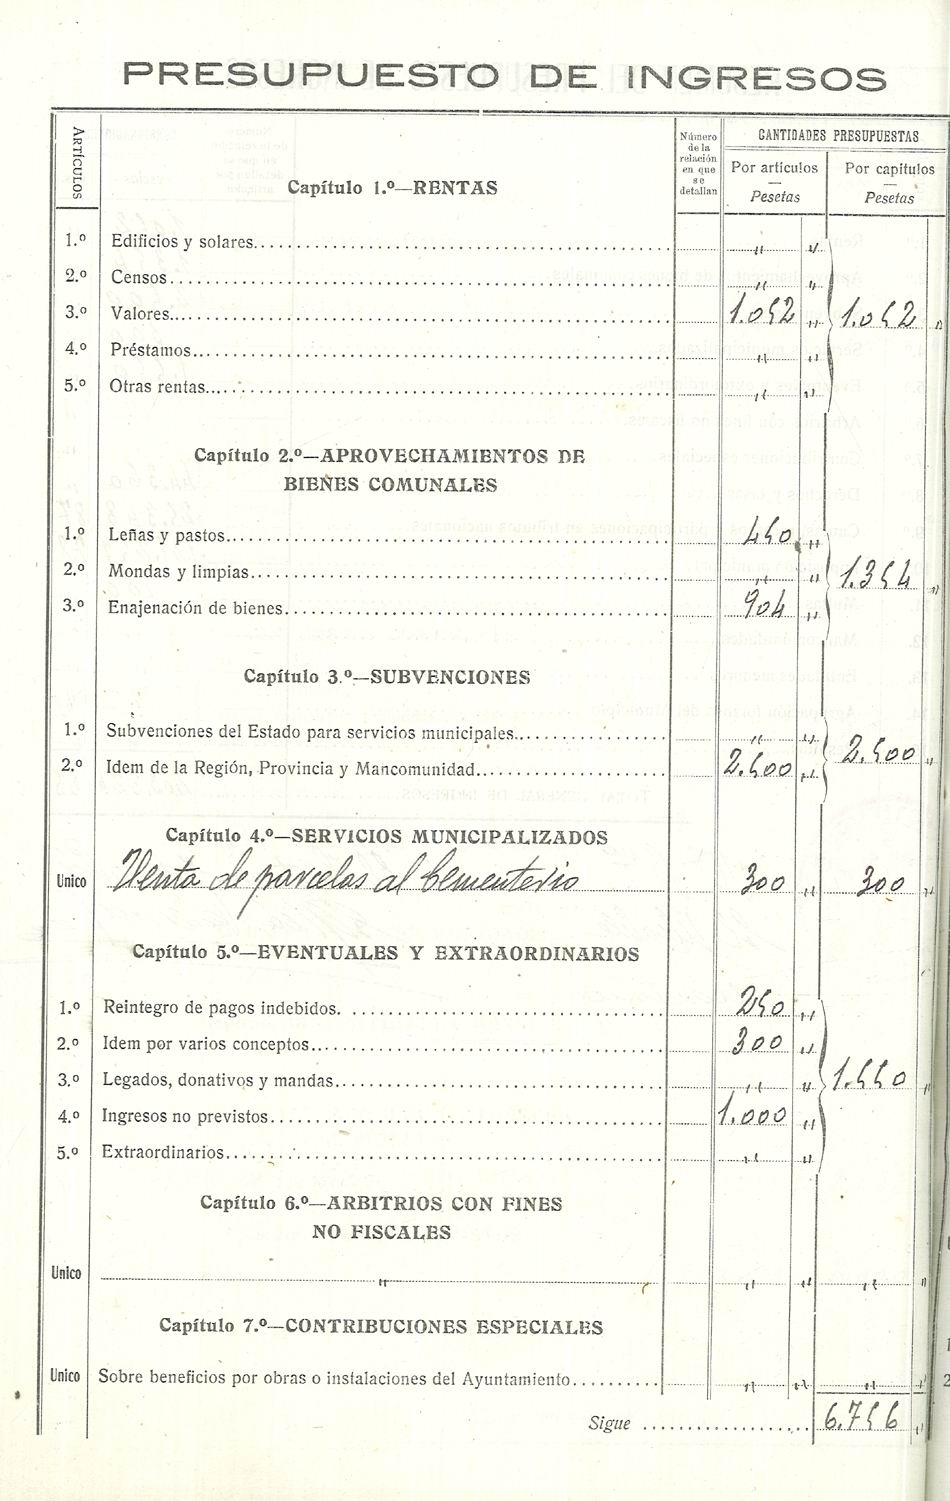 PRESUPUESTO DE INGRESOS
ARTÍCULOS
Número de la relación en que se detallan
CANTIDADES PRESUPUESTAS
Por artículos — Pesetas
Por capítulos — Pesetas
Capítulo 1.º—RENTAS
1.º Edificios y solares " "
2.º Censos " "
3.º Valores 1.052 " 1.052 "
4.º Préstamos " "
5.º Otras rentas " "
Capítulo 2.º—APROVECHAMIENTOS DE
BIENES COMUNALES
1.º Leñas y pastos 450 "
2.º Mondas y limpias " " 1.354 "
3.º Enajenación de bienes 904 "
Capítulo 3.º—SUBVENCIONES
1.º Subvenciones del Estado para servicios municipales " "
2.º Idem de la Región, Provincia y Mancomunidad 2.500 " 2.500 "
Capítulo 4.º—SERVICIOS MUNICIPALIZADOS
Unico Venta de parcelas al Cementerio 300 " 300 "
Capítulo 5.º—EVENTUALES Y EXTRAORDINARIOS
1.º Reintegro de pagos indebidos 250 "
2.º Idem por varios conceptos 300 "
3.º Legados, donativos y mandas " " 1.550 "
4.º Ingresos no previstos 1.000 "
5.º Extraordinarios " "
Capítulo 6.º—ARBITRIOS CON FINES
NO FISCALES
Unico " " " " "
Capítulo 7.º—CONTRIBUCIONES ESPECIALES
Unico Sobre beneficios por obras o instalaciones del Ayuntamiento " " " "
Sigue 6.756 "